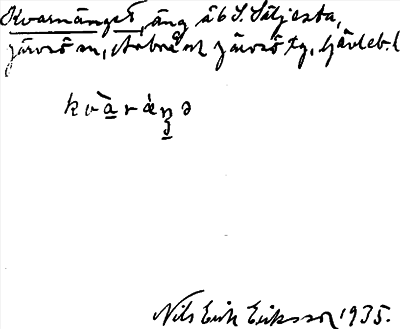 Kvarnänget, äng å 6 S. Säljesta,
Järvsö sn, Arbrå ok Järvsö tg, Gävleb. l
kvàräŋə
Nils Erik Eriksson 1935.